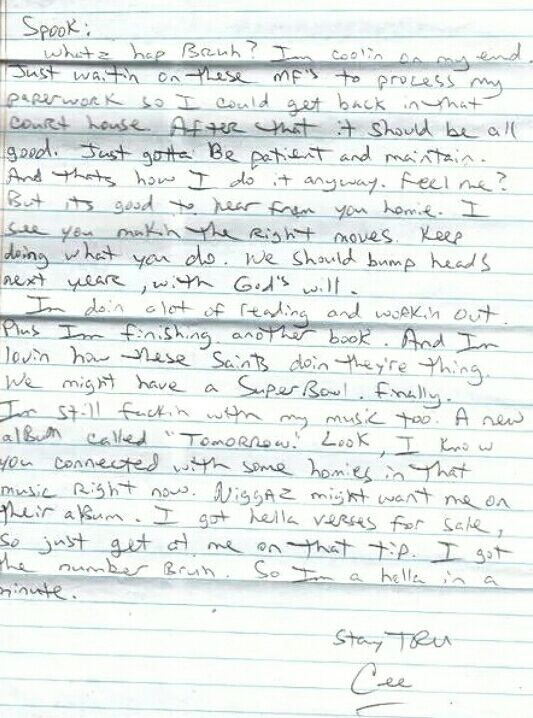 Spook:
Whatz hap Bruh? Im coolin on my end.
Just waitin on these MF's to process my
paperwork so I could get back in that
court house. After that it should be all
good. Just gotta Be patient and maintain.
And thats how I do it anyway. Feel me?
But its good to hear from you homie. I
see you makin the Right moves. Keep
doing what you do. We should bump heads
next yeare, with God's will.
Im doin alot of reading and workin out.
Plus Im finishing another book. And Im
lovin how these Saints doin they're thing.
We might have a SuperBowl. Finally.
Im still fuckin with my music too. A new
album called "Tomorrow." Look, I know
you connected with some homies in that
music Right now. Niggaz might want me on
their album. I got hella verses for sale,
so just get at me on that tip. I got
the number Bruh. So Im a holla in a
minute.
Stay TRU
Cee